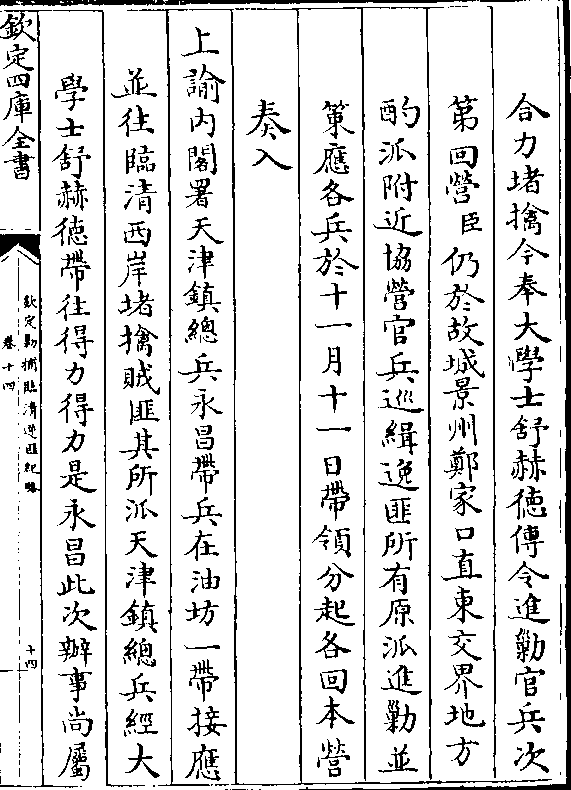 合力堵擒今奉大學士舒赫徳傳令進勦官兵次
第回營臣仍於故城景州鄭家口直東交界地方
酌派附近協營官兵巡緝逸匪所有原派進勦並
策應各兵於十一月十一日帶領分起各回本營
奏入
上諭内閣署天津鎮總兵永昌帶兵在油坊一帶接應
並往臨清西岸堵擒賊匪其所派天津鎮總兵經大
學士舒赫徳帶往得力得力是永昌此次辦事尚屬
欽定四庫全書
欽定勦捕臨清逆匪紀略
卷十四
十四